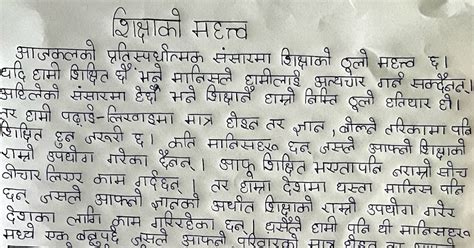 शिक्षाको महत्त्व
आजकलको प्रतिस्पर्धात्मक संसारमा शिक्षाको ठूलो महत्व छ।
यदि हामी शिक्षित छौँ भने मानिसले हामीलाई अत्याचार गर्न सक्दैनन्।
अहिलेको संसारमा हेर्दा भने शिक्षानै हाम्रो निम्ति ठूलो हतियार हो।
तर हामी पढाई-लिखाइमा मात्र होइन तर ज्ञान, बोल्ने तरिकामा पनि
शिक्षित हुन जरूरी छ। कति मानिसहरू छन् जसले आफ्नो शिक्षाको
राम्रो उपयोग गरेका छैनन्। आफू शिक्षित भएतापनि नराम्रो सोच
बीचार लिएर काम गर्दछन्। तर हाम्रा देशमा यस्ता मानिस पनि
छन् जसले आफ्नो ज्ञानको अर्थात शिक्षाको राम्रो उपयोग गरेर
देशका लागि काम गरिरहेका छन्। यसैले हामी पनि यी मानिसहरू
मध्ये एक बन्नुपर्दछ जसले आफ्नो परिवारको मात्र